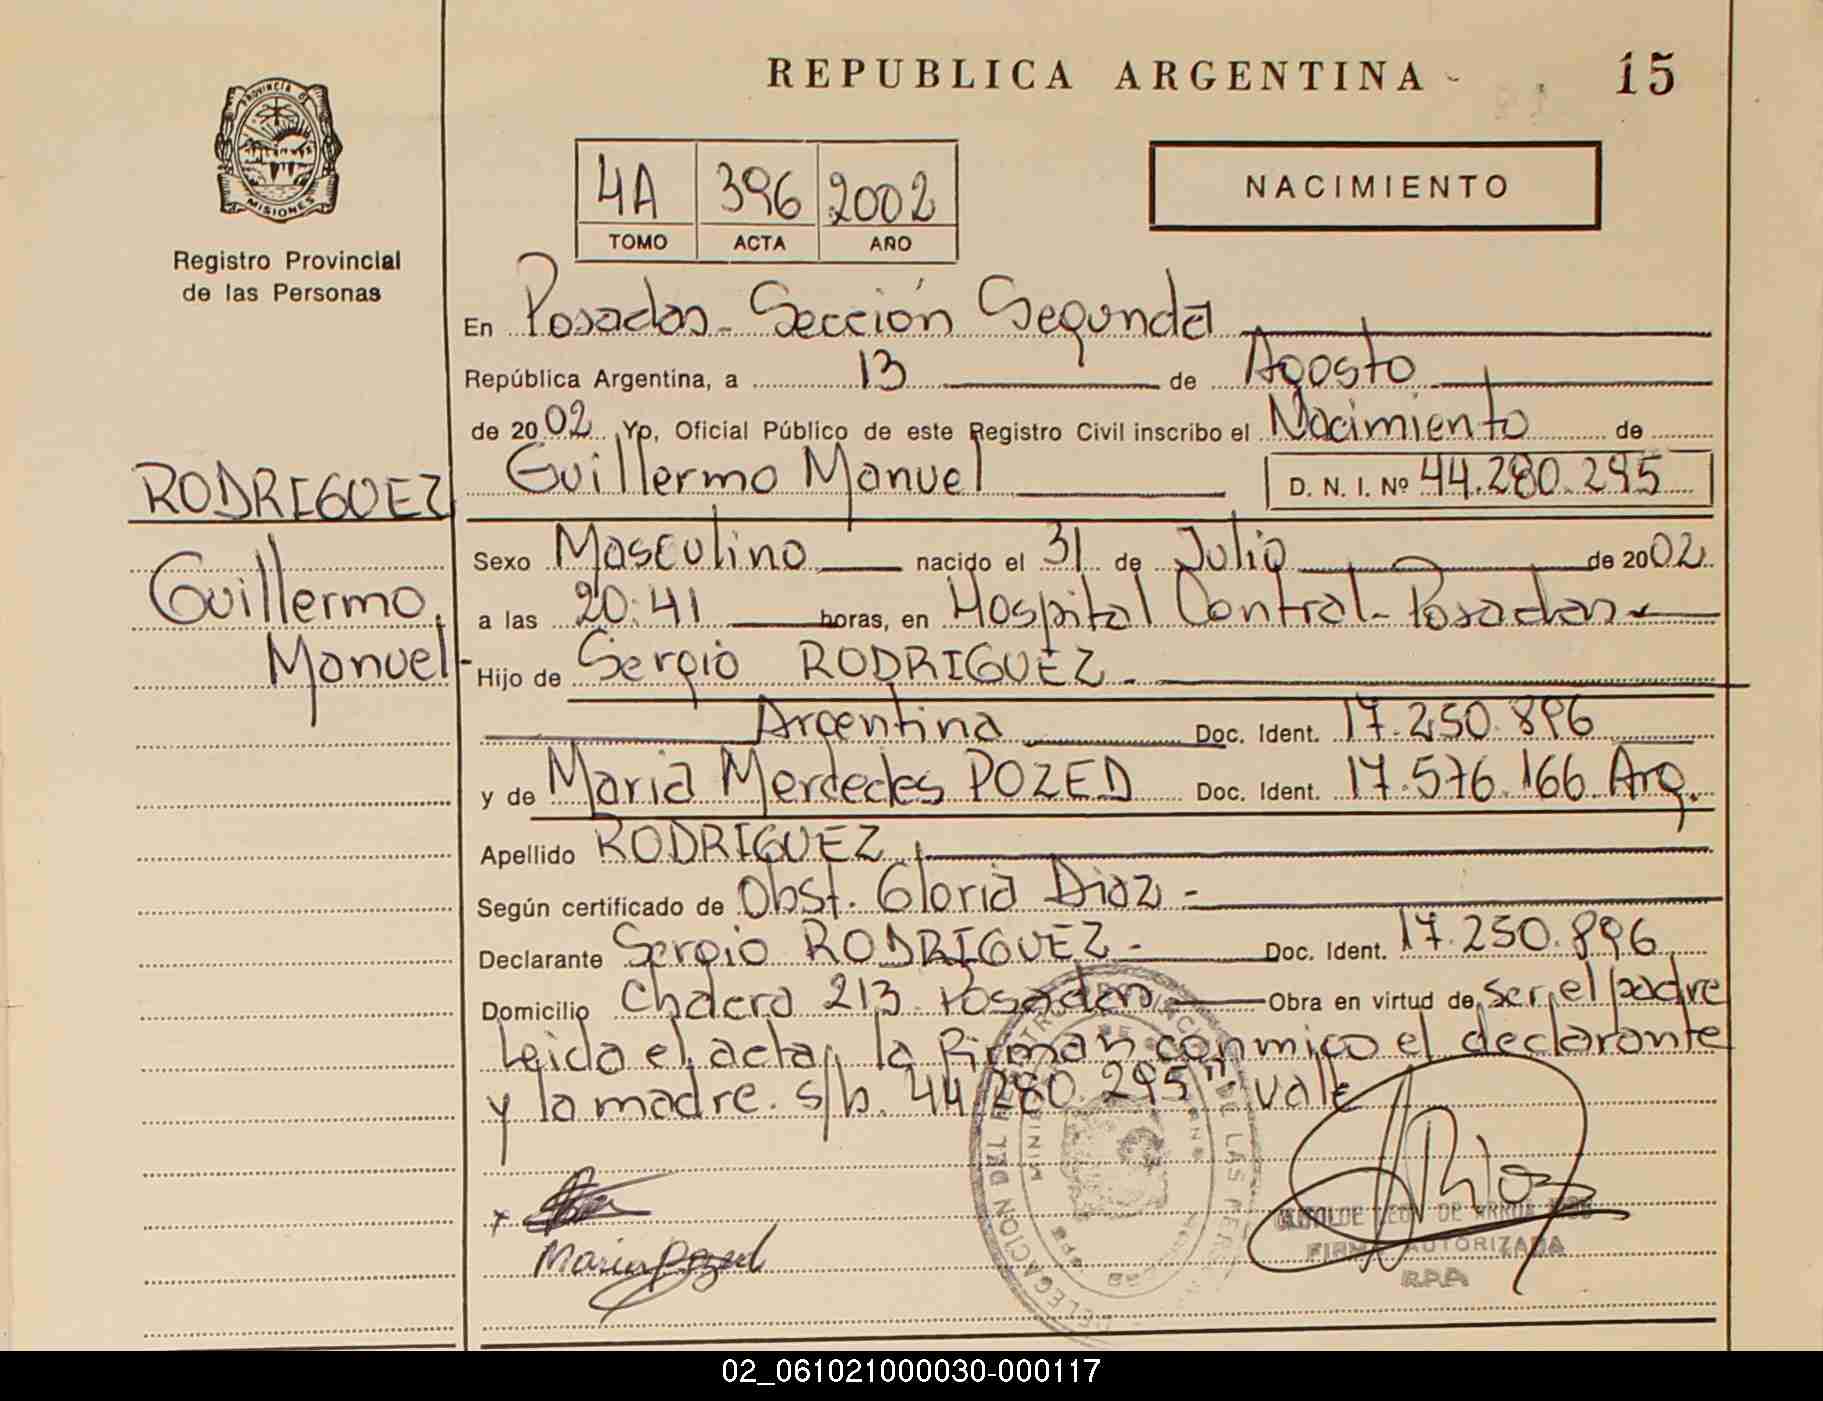 REPUBLICA ARGENTINA
15
PROVINCIA DE
MISIONES
Registro Provincial
de las Personas
4A 396 2002
TOMO ACTA AÑO
NACIMIENTO
En Posadas - Sección Segunda
República Argentina, a 13 de Agosto
de 2002. Yo, Oficial Público de este Registro Civil inscribo el Nacimiento de
Guillermo Manuel D. N. I. Nº 44.280.295
RODRIGUEZ
Guillermo
Manuel-
Sexo Masculino nacido el 31 de Julio de 2002
a las 20:41 horas, en Hospital Central - Posadas
Hijo de Sergio RODRIGUEZ.
Argentina Doc. Ident. 17.250.896
y de Maria Merdedes POZED Doc. Ident. 17.576.166 Arg.
Apellido RODRIGUEZ
Según certificado de Obst. Gloria Diaz -
Declarante Sergio RODRIGUEZ - Doc. Ident. 17.250.896
Domicilio Chacra 213 - Posadas Obra en virtud de ser el padre
Leida el acta, la firman conmigo el declarante
y la madre. s/b. 44.280.295" Valle
Maria Pozed
LEON DE ARRUA
FIRMA AUTORIZADA
R.P.P.
02_061021000030-000117